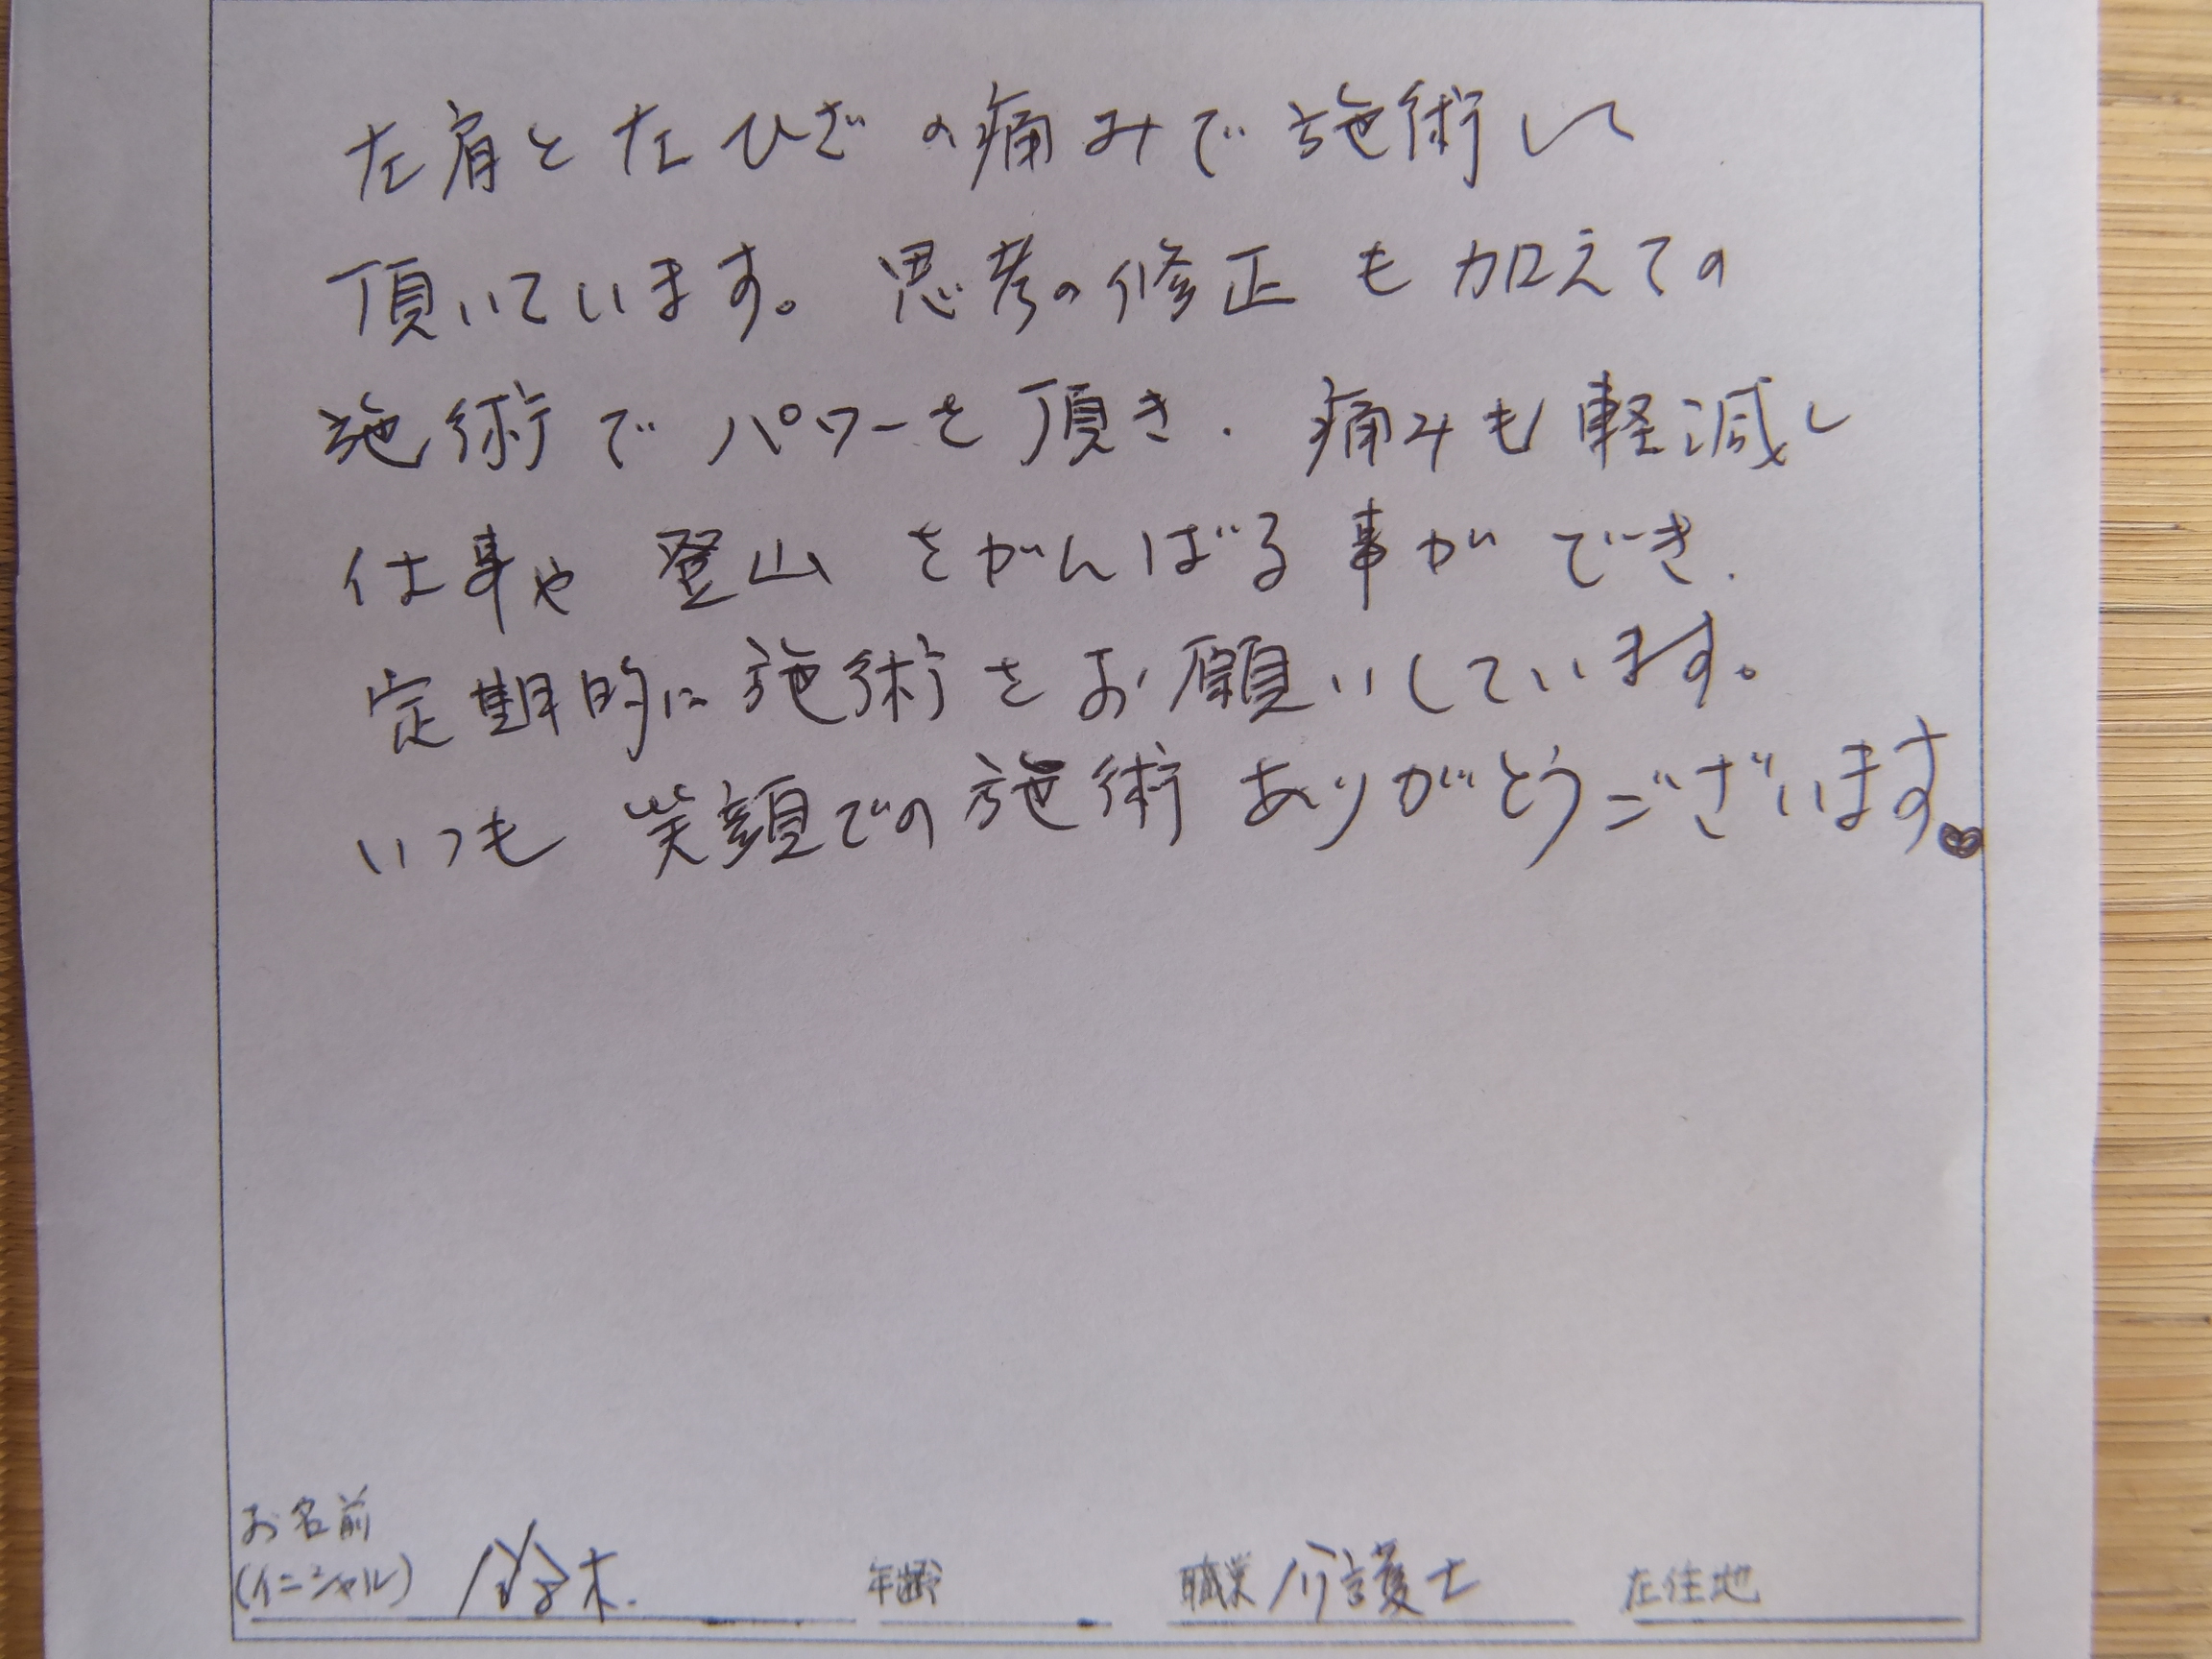 左肩と左ひざの痛みで施術して
頂いています。思考の修正も加えての
施術でパワーを頂き、痛みも軽減し
仕事や登山をがんばる事ができ、
定期的に施術をお願いしています。
いつも笑顔での施術ありがとうございます♥
お名前
(イニシャル) 鈴木 年齢 職業 介護士 在住地